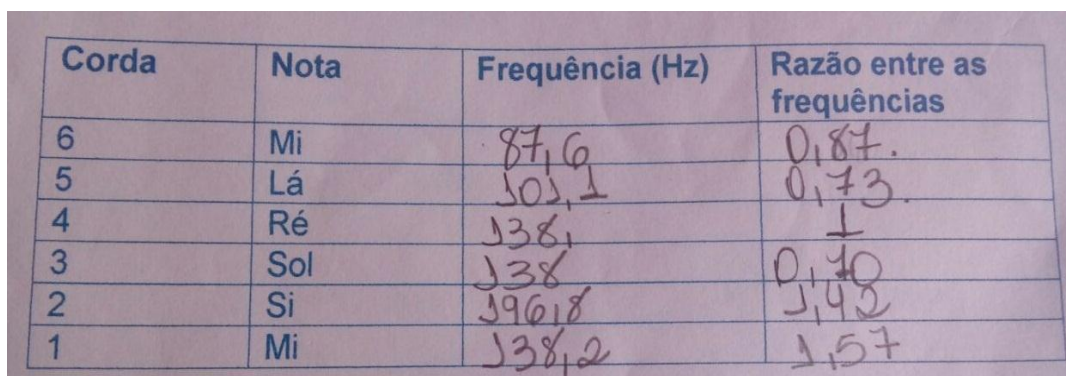 Corda Nota Frequência (Hz) Razão entre as frequências
6 Mi 87,6 0,87.
5 Lá 101,1 0,73.
4 Ré 138, 1
3 Sol 138 0,70
2 Si 196,8 1,42
1 Mi 138,2 1,57